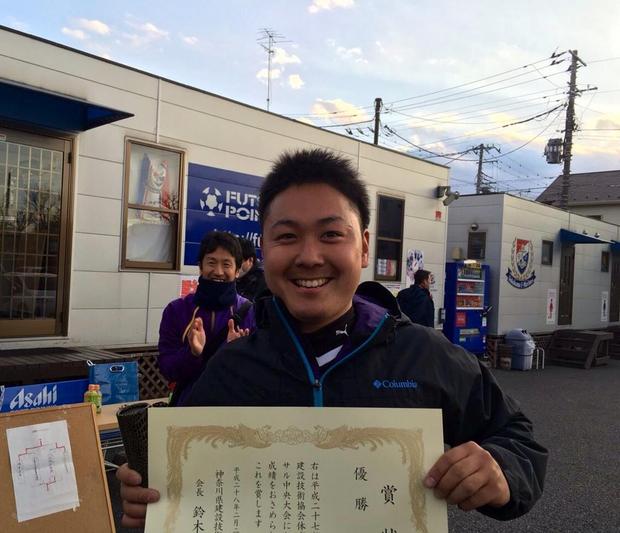 FUT
POIN
Columbia
Asahi
賞状
優勝
右は平成二十七
建設技術協会体
サル中央大会に
成績をおさめら
これを賞します
平成二十八年二月
神奈川県建設技
会長 鈴木